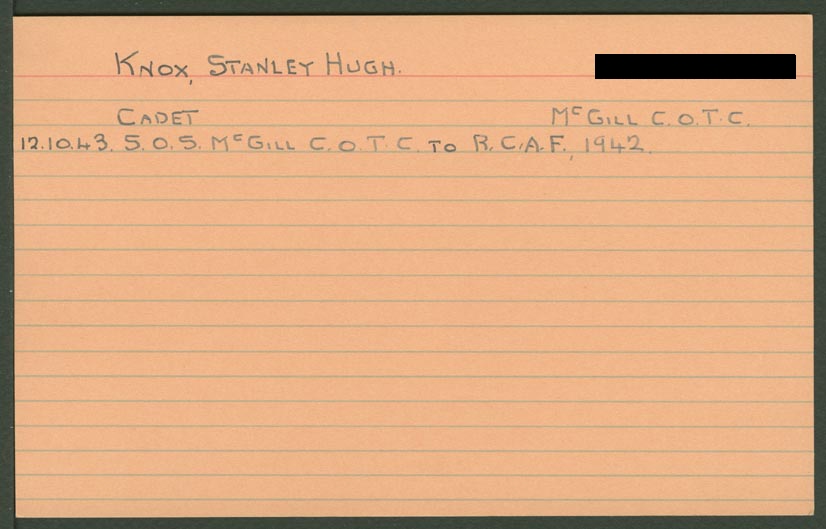 KNOX, STANLEY HUGH.
CADET McGILL C.O.T.C.
12.10.43. S.O.S. McGILL C.O.T.C. TO R.C.A.F., 1942.